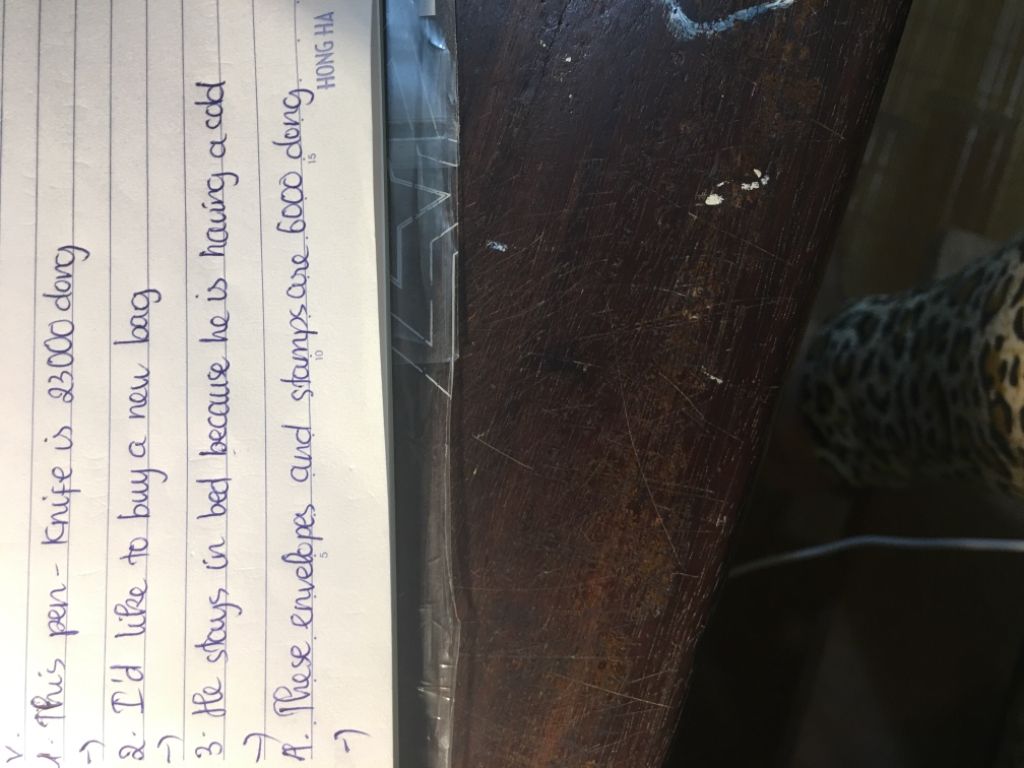 V.
1. This pen-knife is 22000 dong
->
2. I'd like to buy a new bag
->
3. He stays in bed because he is having a cold
->
4. These envelopes and stamps are 6000 dong.
->
5 10 15
HONG HA